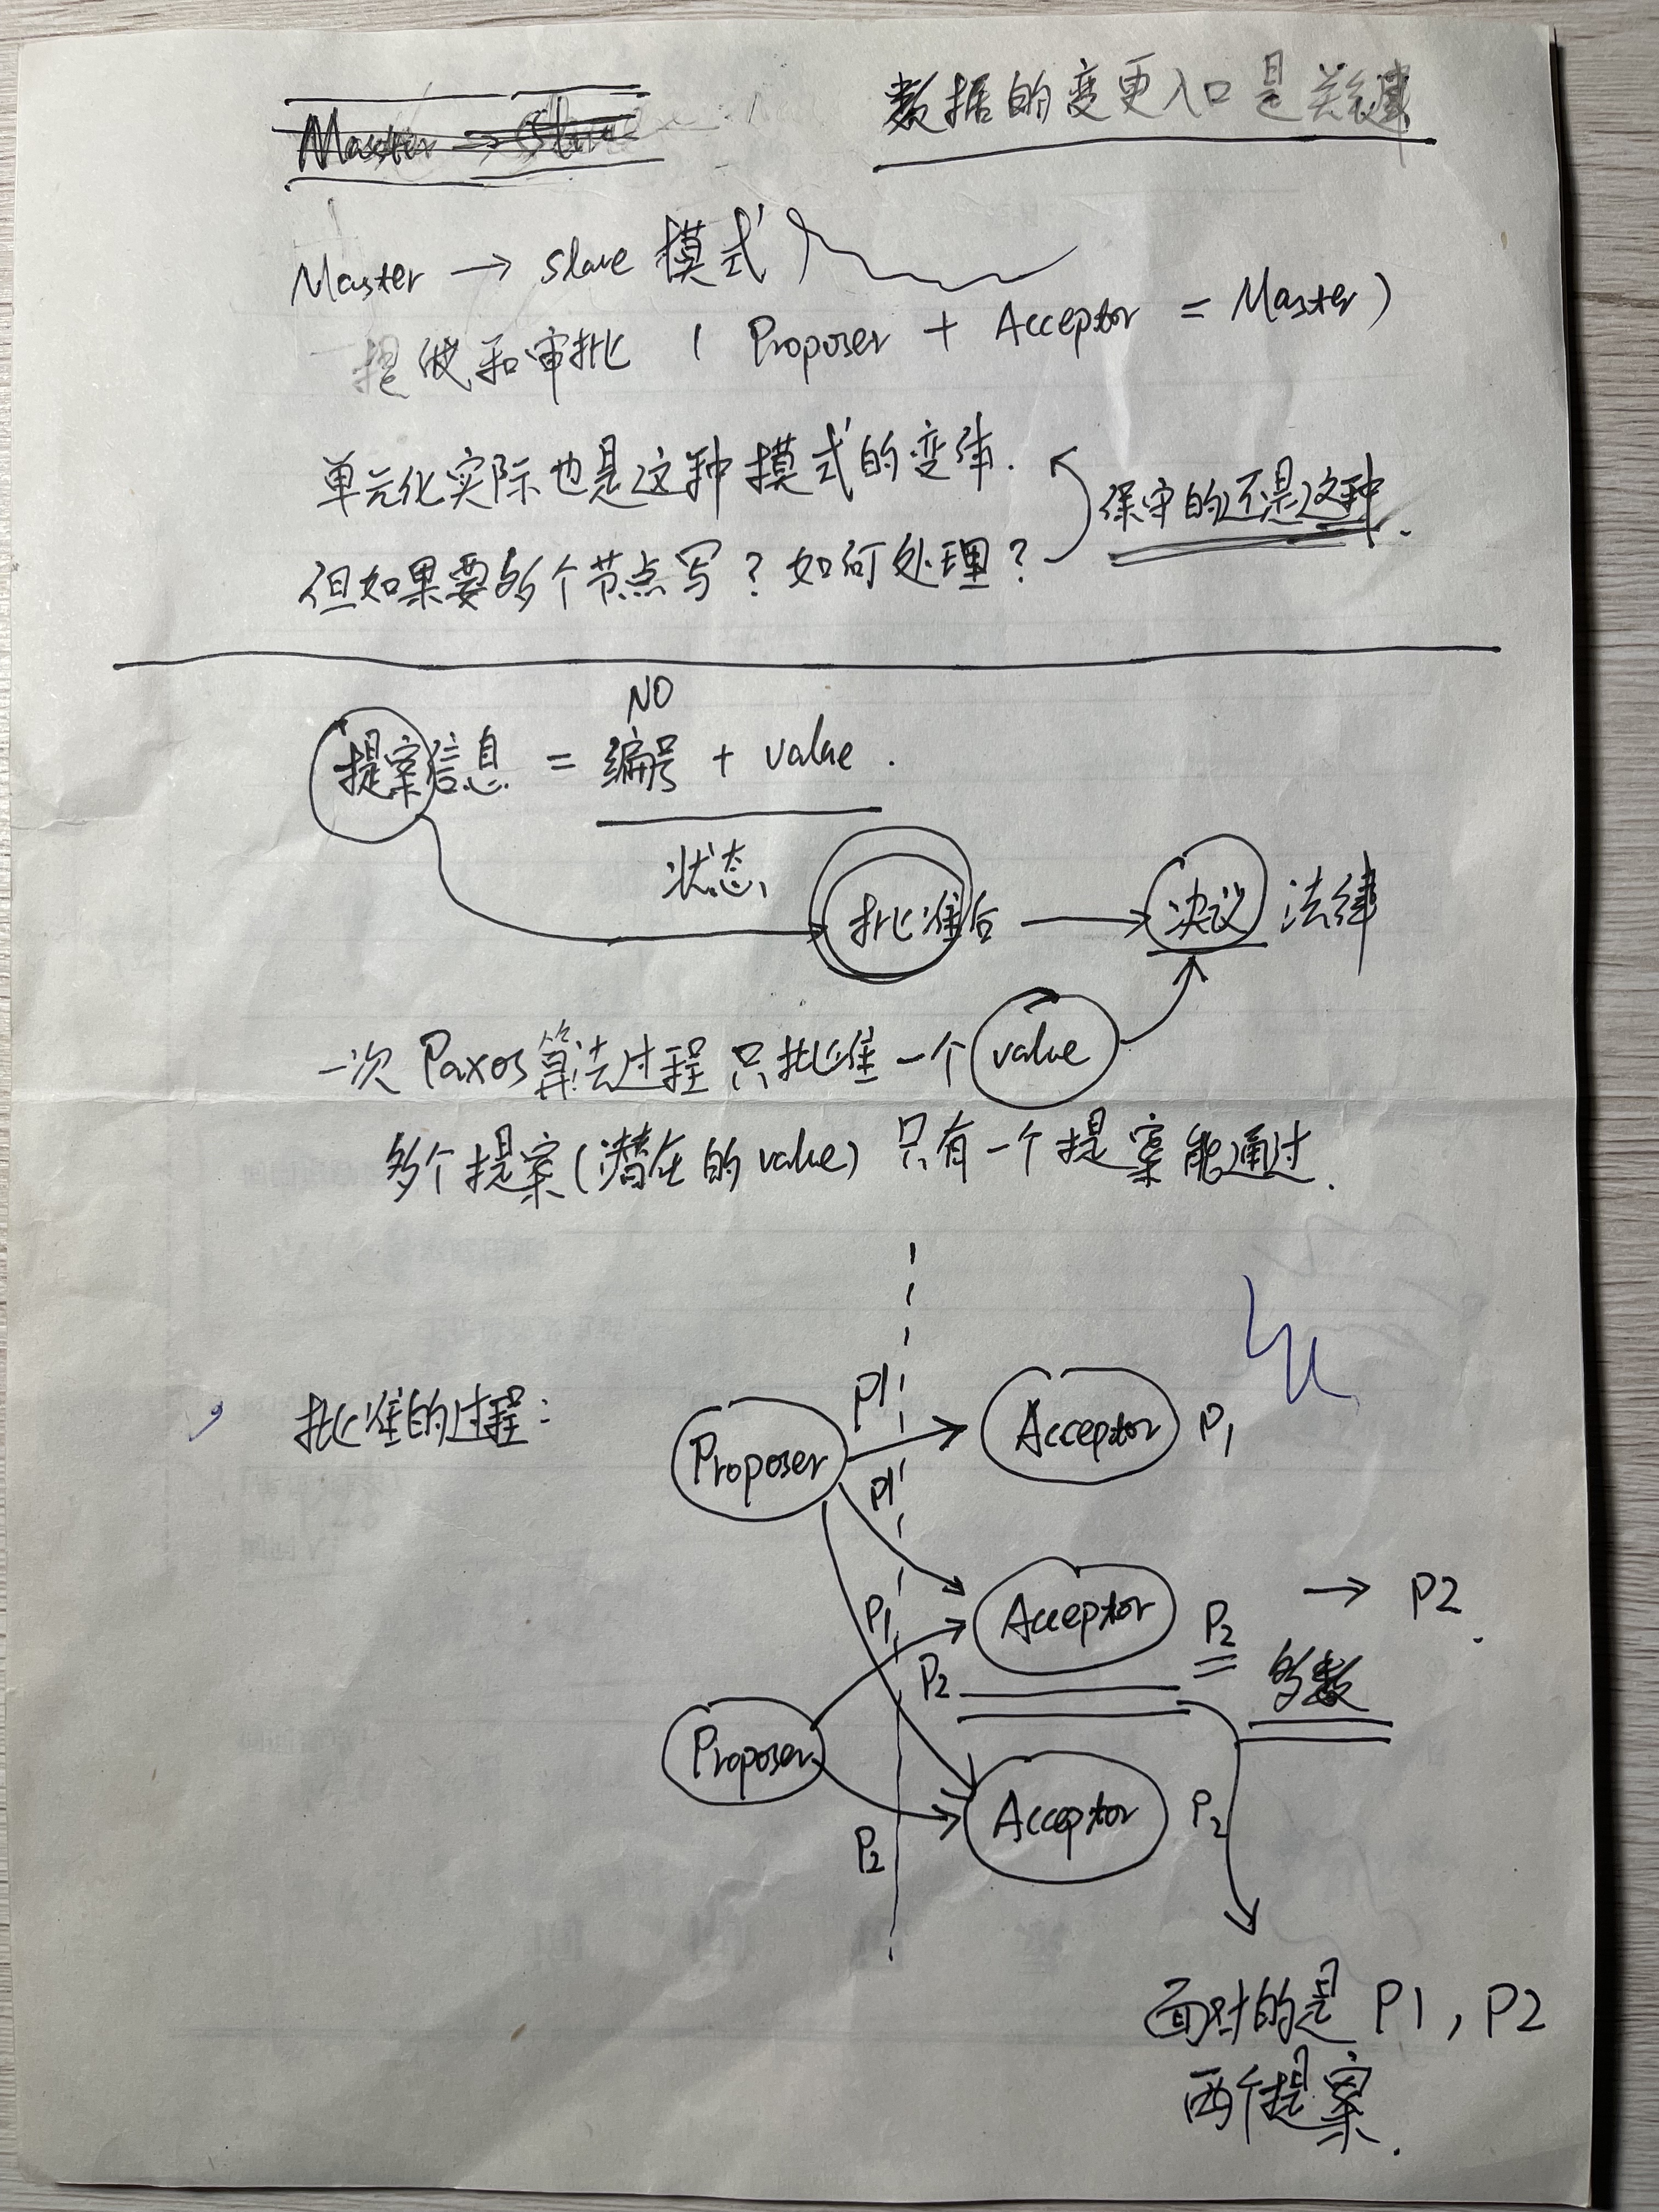 数据的变更入口是关键
Master → slave 模式
提优和审批 ( Proposer + Acceptor = Master )
单元化实际也是这种模式的变体.
保守的还是这种.
但如果要多个节点写? 如何处理?
NO
提案信息 = 编号 + value.
状态
批准后 → 决议 法律
一次 Paxos 算法过程 只批准一个 value
多个提案(潜在的 value) 只有一个提案能通过.
批准的过程:
P1
Proposer
Acceptor P1
P1
Acceptor P2 → P2.
P1
P2
多数
Proposer
Acceptor P2
P2
面对的是 P1, P2
两个提案.